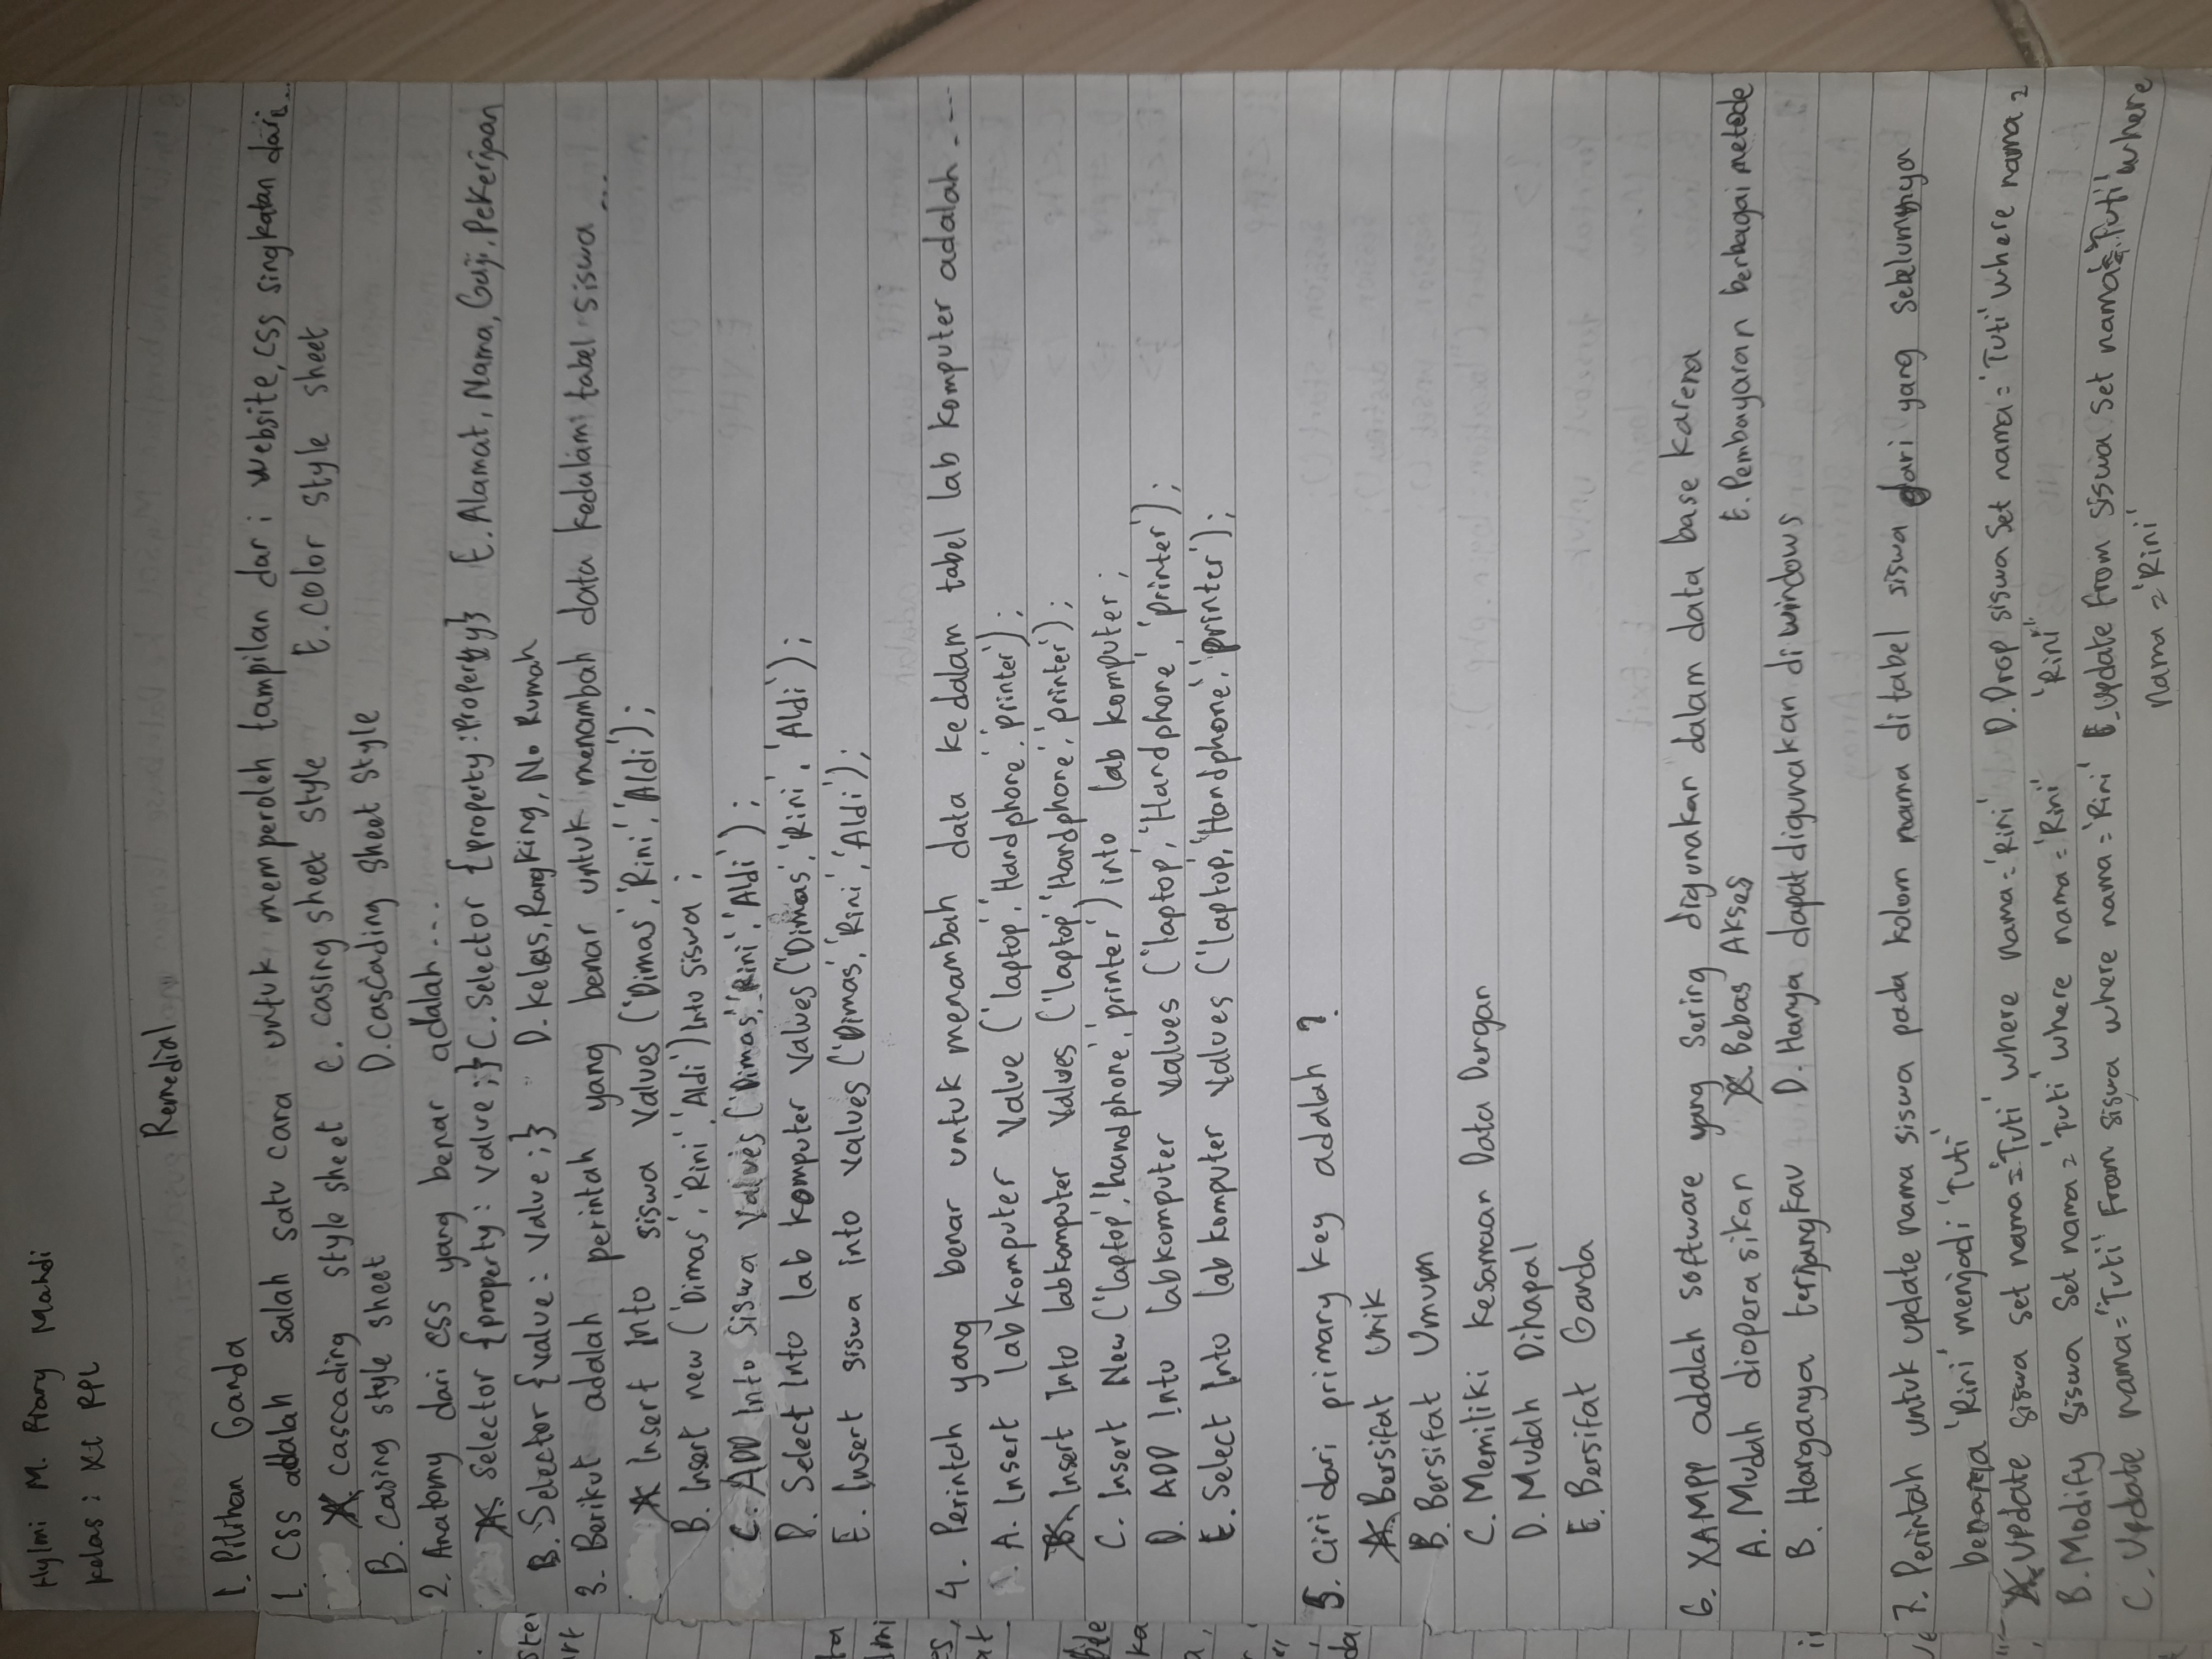 Hylmi M. Fiary Mahdi
Kelas : XI RPL
Remedial
1. Pilihan Ganda
1. CSS adalah salah satu cara untuk memperoleh tampilan dari website, CSS singkatan dari...
A. Cascading style sheet C. Casing sheet style E. Color style sheet
B. Casing style sheet D. Cascading sheet style
2. Anatomy dari CSS yang benar adalah...
A. Selector {property: value;} C. Selector {property:Property} E. Alamat, Nama, Gaji, Pekerjaan
B. Selector {value: Value;} D. Kelas, Rangking, No Rumah
3. Berikut adalah perintah yang benar untuk menambah data kedalam tabel siswa ...
A Insert Into siswa Values ('Dimas','Rini','Aldi');
B. Insert new ('Dimas','Rini','Aldi') Into siswa ;
C. ADD Into Siswa Values ('Dimas','Rini','Aldi');
D. Select Into lab komputer Values ('Dimas','Rini','Aldi');
E. Insert siswa into values ('Dimas','Rini','Aldi');
4. Perintah yang benar untuk menambah data kedalam tabel lab komputer adalah....
A. Insert labkomputer Value ('laptop','Handphone','printer');
B. Insert Into labkomputer Values ('laptop','Handphone','printer');
C. Insert New ('laptop','handphone','printer') into lab komputer;
D. ADD Into labkomputer values ('laptop','Handphone','printer');
E. Select Into labkomputer values ('laptop','Handphone','printer');
5. Ciri dari primary key adalah ?
A. Bersifat Unik
B. Bersifat Umum
C. Memiliki Kesamaan Data Dengan
D. Mudah Dihapal
E. Bersifat Ganda
6. XAMPP adalah software yang sering digunakan dalam data base karena
A. Mudah dioperasikan C. Bebas Akses E. Pembayaran berbagai metode
B. Harganya terjangkau D. Hanya dapat digunakan di windows
7. Perintah untuk update nama siswa pada kolom nama di tabel siswa dari yang sebelumnya
benama 'Rini' menjadi 'Tuti'
A. Update siswa set nama='Tuti' where nama='Rini' D. Drop siswa Set nama='Tuti' where nama =
B. Modify siswa Set nama='Tuti' where nama='Rini' 'Rini'
C. Update nama='Tuti' From siswa where nama='Rini' E. Update From siswa Set nama='Tuti' where
nama ='Rini'